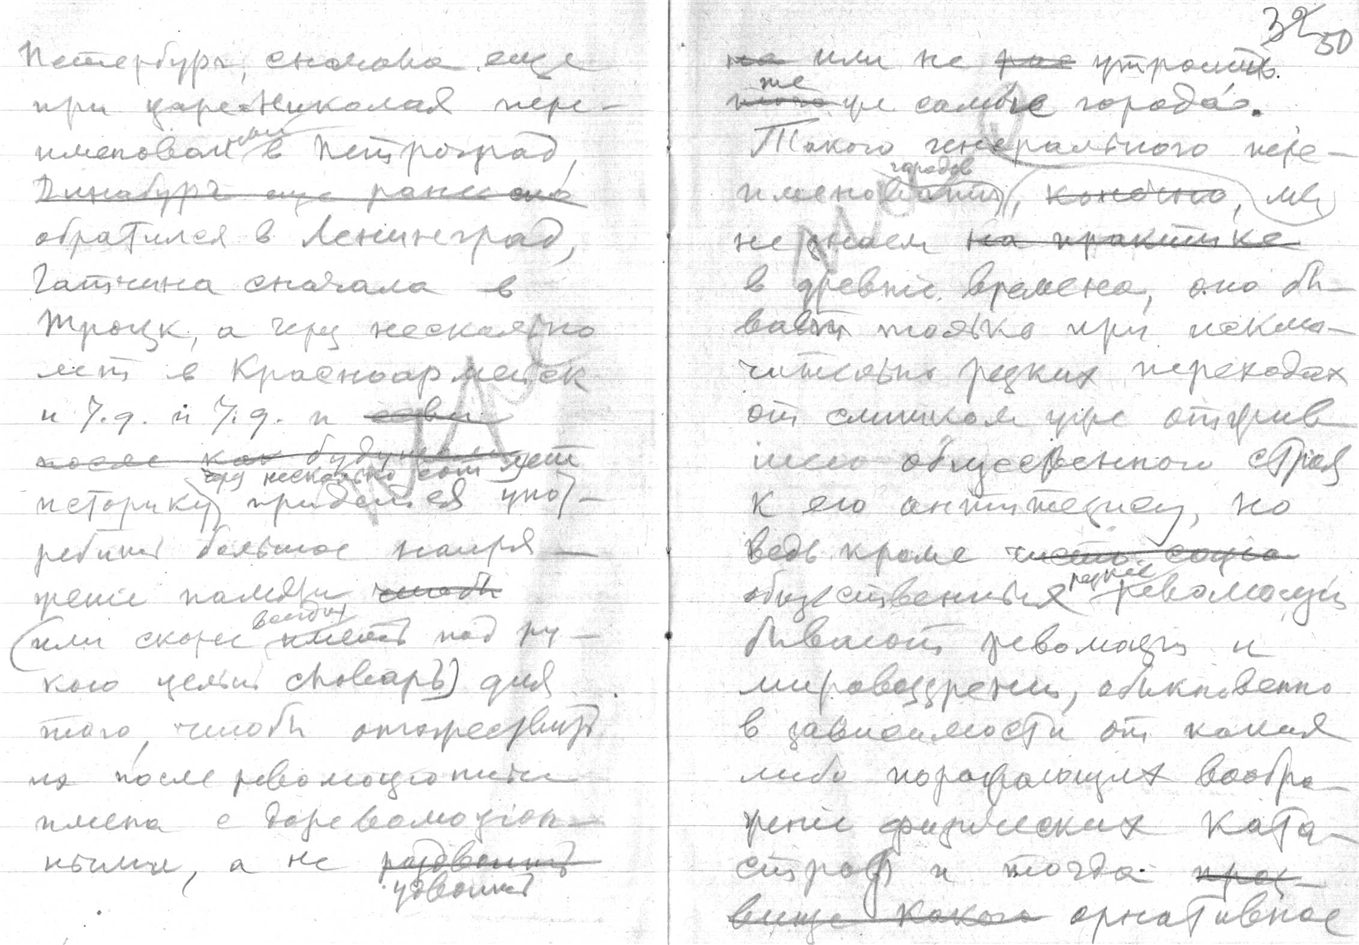 Петербург, сначала еще
при царе Николае пере-
именован в Петроград,
Динабург еще ранее
обратился в Ленинград,
Гатчина сначала в
Троцк, а через несколько
лет в Красноармейск
и т.д. и т.д. и
после как будущ
чрез несколько сот лет
историку придется упот-
ребить большое напря-
жение памяти чтобы
(или скорее иметь под ру-
кою целый словарь) для
того, чтобы отожествить
их после революционные
имена с дореволюцион-
ными, а не раздвоить
удвоить
32 50
на или не рас утроить
же
те самые города.
Такого генерального пере-
городов
именования, конечно, мы
не знаем на практике
в древние времена, оно бы-
вает только при исклю-
чительно редких переходах
от слишком уже отжив
шего общественного строя
к его антитезису, но
ведь кроме
редкие
общественных революций
бывают революции и
мировоззрения, обыкновенно
в зависимости от каких
либо поражающих вообра-
жение физических ката-
строф и тогда
какого орнативное